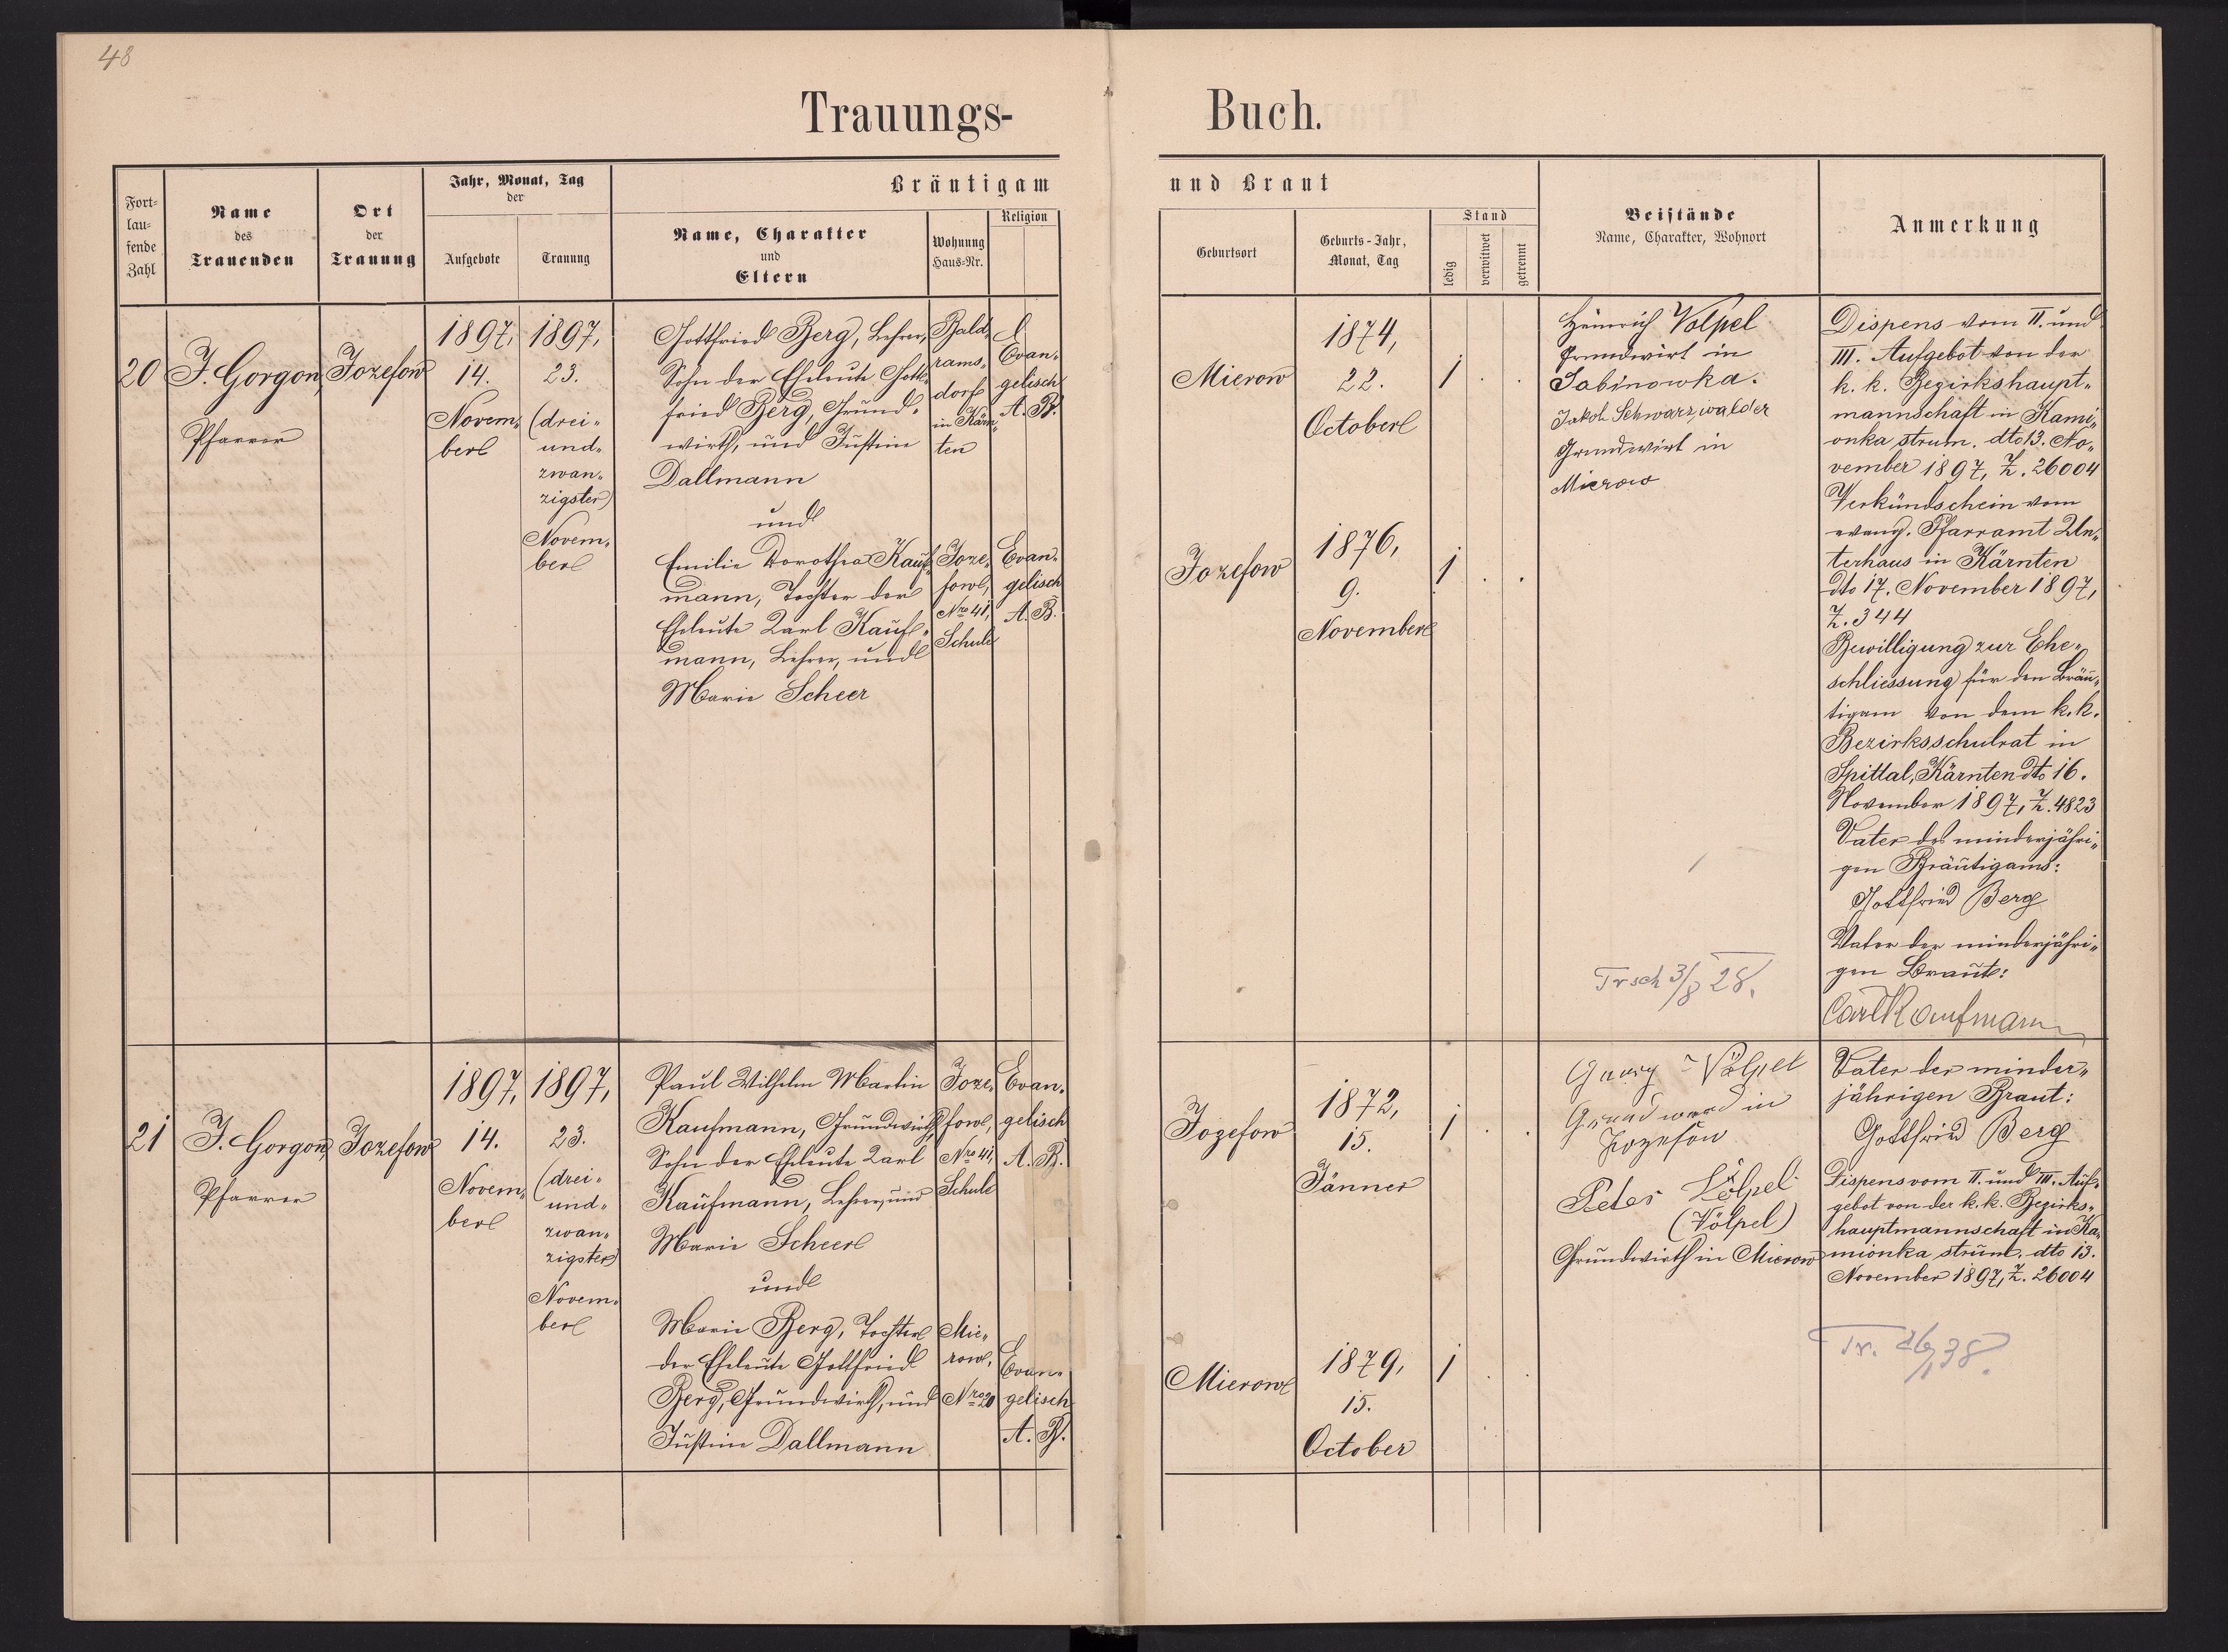 48
Trauungs-
Buch.
Fort-
lau-
fende
Zahl
Name
des
Trauenden
Ort
der
Trauung
Jahr, Monat, Tag
der
Aufgebote
Trauung
Bräutigam
Name, Charakter
und
Eltern
Wohnung
Haus-Nr.
Religion
und Braut
Geburtsort
Geburts-Jahr,
Monat, Tag
Stand
ledig
verwitwet
getrennt
Beistände
Name, Charakter, Wohnort
Anmerkung
20
J. Gorgon,
Pfarrer
Jozefow
1897,
14.
Novem„
ber
1897,
23.
(drei„
und„
zwan„
zigster)
Novem„
ber
Gottfried Berg, Lehrer,
Sohn der Eheleute Gott„
fried Berg, Grund„
wirth, und Justine
Dallmann
und
Emilie Dorothea Kauf„
mann, Tochter der
Eheleute Karl Kauf„
mann, Lehrer, und
Marie Scheer
Bald„
rams„
dorf
in Kärn„
ten
Joze„
fow,
Nro 41,
Schule
Evan„
gelisch
A. B.
Evan„
gelisch
A. B.
Mierow
1874,
22.
October
1 . .
Jozefow
1876,
9.
November
1 . .
Heinrich Volpel
Grundwirt in
Sabinowka.
Jakob Schwarzwalder
Grundwirt in
Mierow
Trsch 3/8 28.
Dispens vom II. und
III. Aufgebot von der
k. k. Bezirkshaupt„
mannschaft in Kami„
onka strum. dto 13. No„
vember 1897, Z. 26004
Verkündschein vom
evang. Pfarramt Un„
terhaus in Kärnten
dto 17. November 1897,
Z. 344
Bewilligung zur Ehe„
schliessung für den Bräu„
tigam von dem k. k.
Bezirksschulrat in
Spittal, Kärnten dto 16.
November 1897, Z. 4823
Vater des minderjähri„
gen Bräutigams:
Gottfried Berg
Vater der minderjähri„
gen Braut:
Carl Kaufmann
21
J. Gorgon,
Pfarrer
Jozefow
1897,
14.
Novem„
ber
1897,
23.
(drei„
und„
zwan„
zigster)
Novem„
ber
Paul Wilhelm Martin
Kaufmann, Grundwirth,
Sohn der Eheleute Karl
Kaufmann, Lehrer, und
Marie Scheer
und
Marie Berg, Tochter
der Eheleute Gottfried
Berg, Grundwirth, und
Justine Dallmann
Joze„
fow,
Nro 41,
Schule
Mie„
row,
Nro 20
Evan„
gelisch
A. B.
Evan„
gelisch
A. B.
Jozefow
1872,
15.
Jänner
1 . .
Mierow
1879,
15.
October
1 . .
Georg Völpel
in
Jozefow
Peter Völpel
(Völpel)
Grundwirth in Mierow
Vater der minder„
jährigen Braut:
Gottfried Berg
Dispens vom II. und III. Auf„
gebot von der k. k. Bezirks„
hauptmannschaft in Ka„
mionka strum. dto 13.
November 1897, Z. 26004